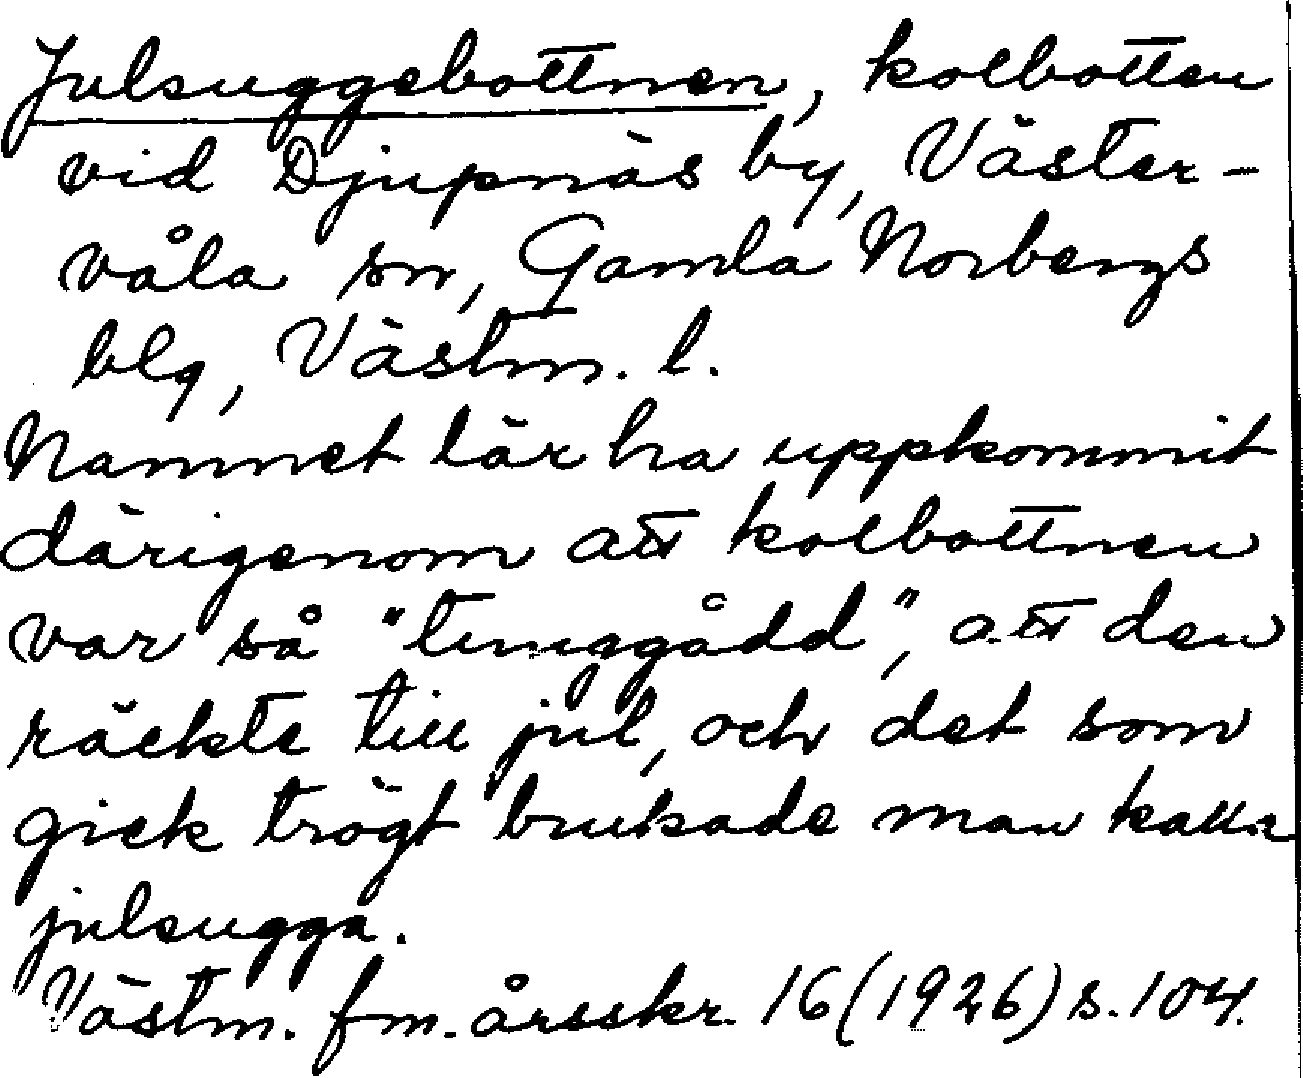 Julsuggebottnen, kolbotten
vid Djupnäs by, Väster-
våla sn, Gamla Norbergs
blg, Västm. l.
Namnet lär ha uppkommit
därigenom att kolbottnen
var så "tunggådd", att den
räckte till jul, och det som
gick trögt brukade man kalla
julsugga.
Västm. fm. årsskr. 16 (1926) s. 104.